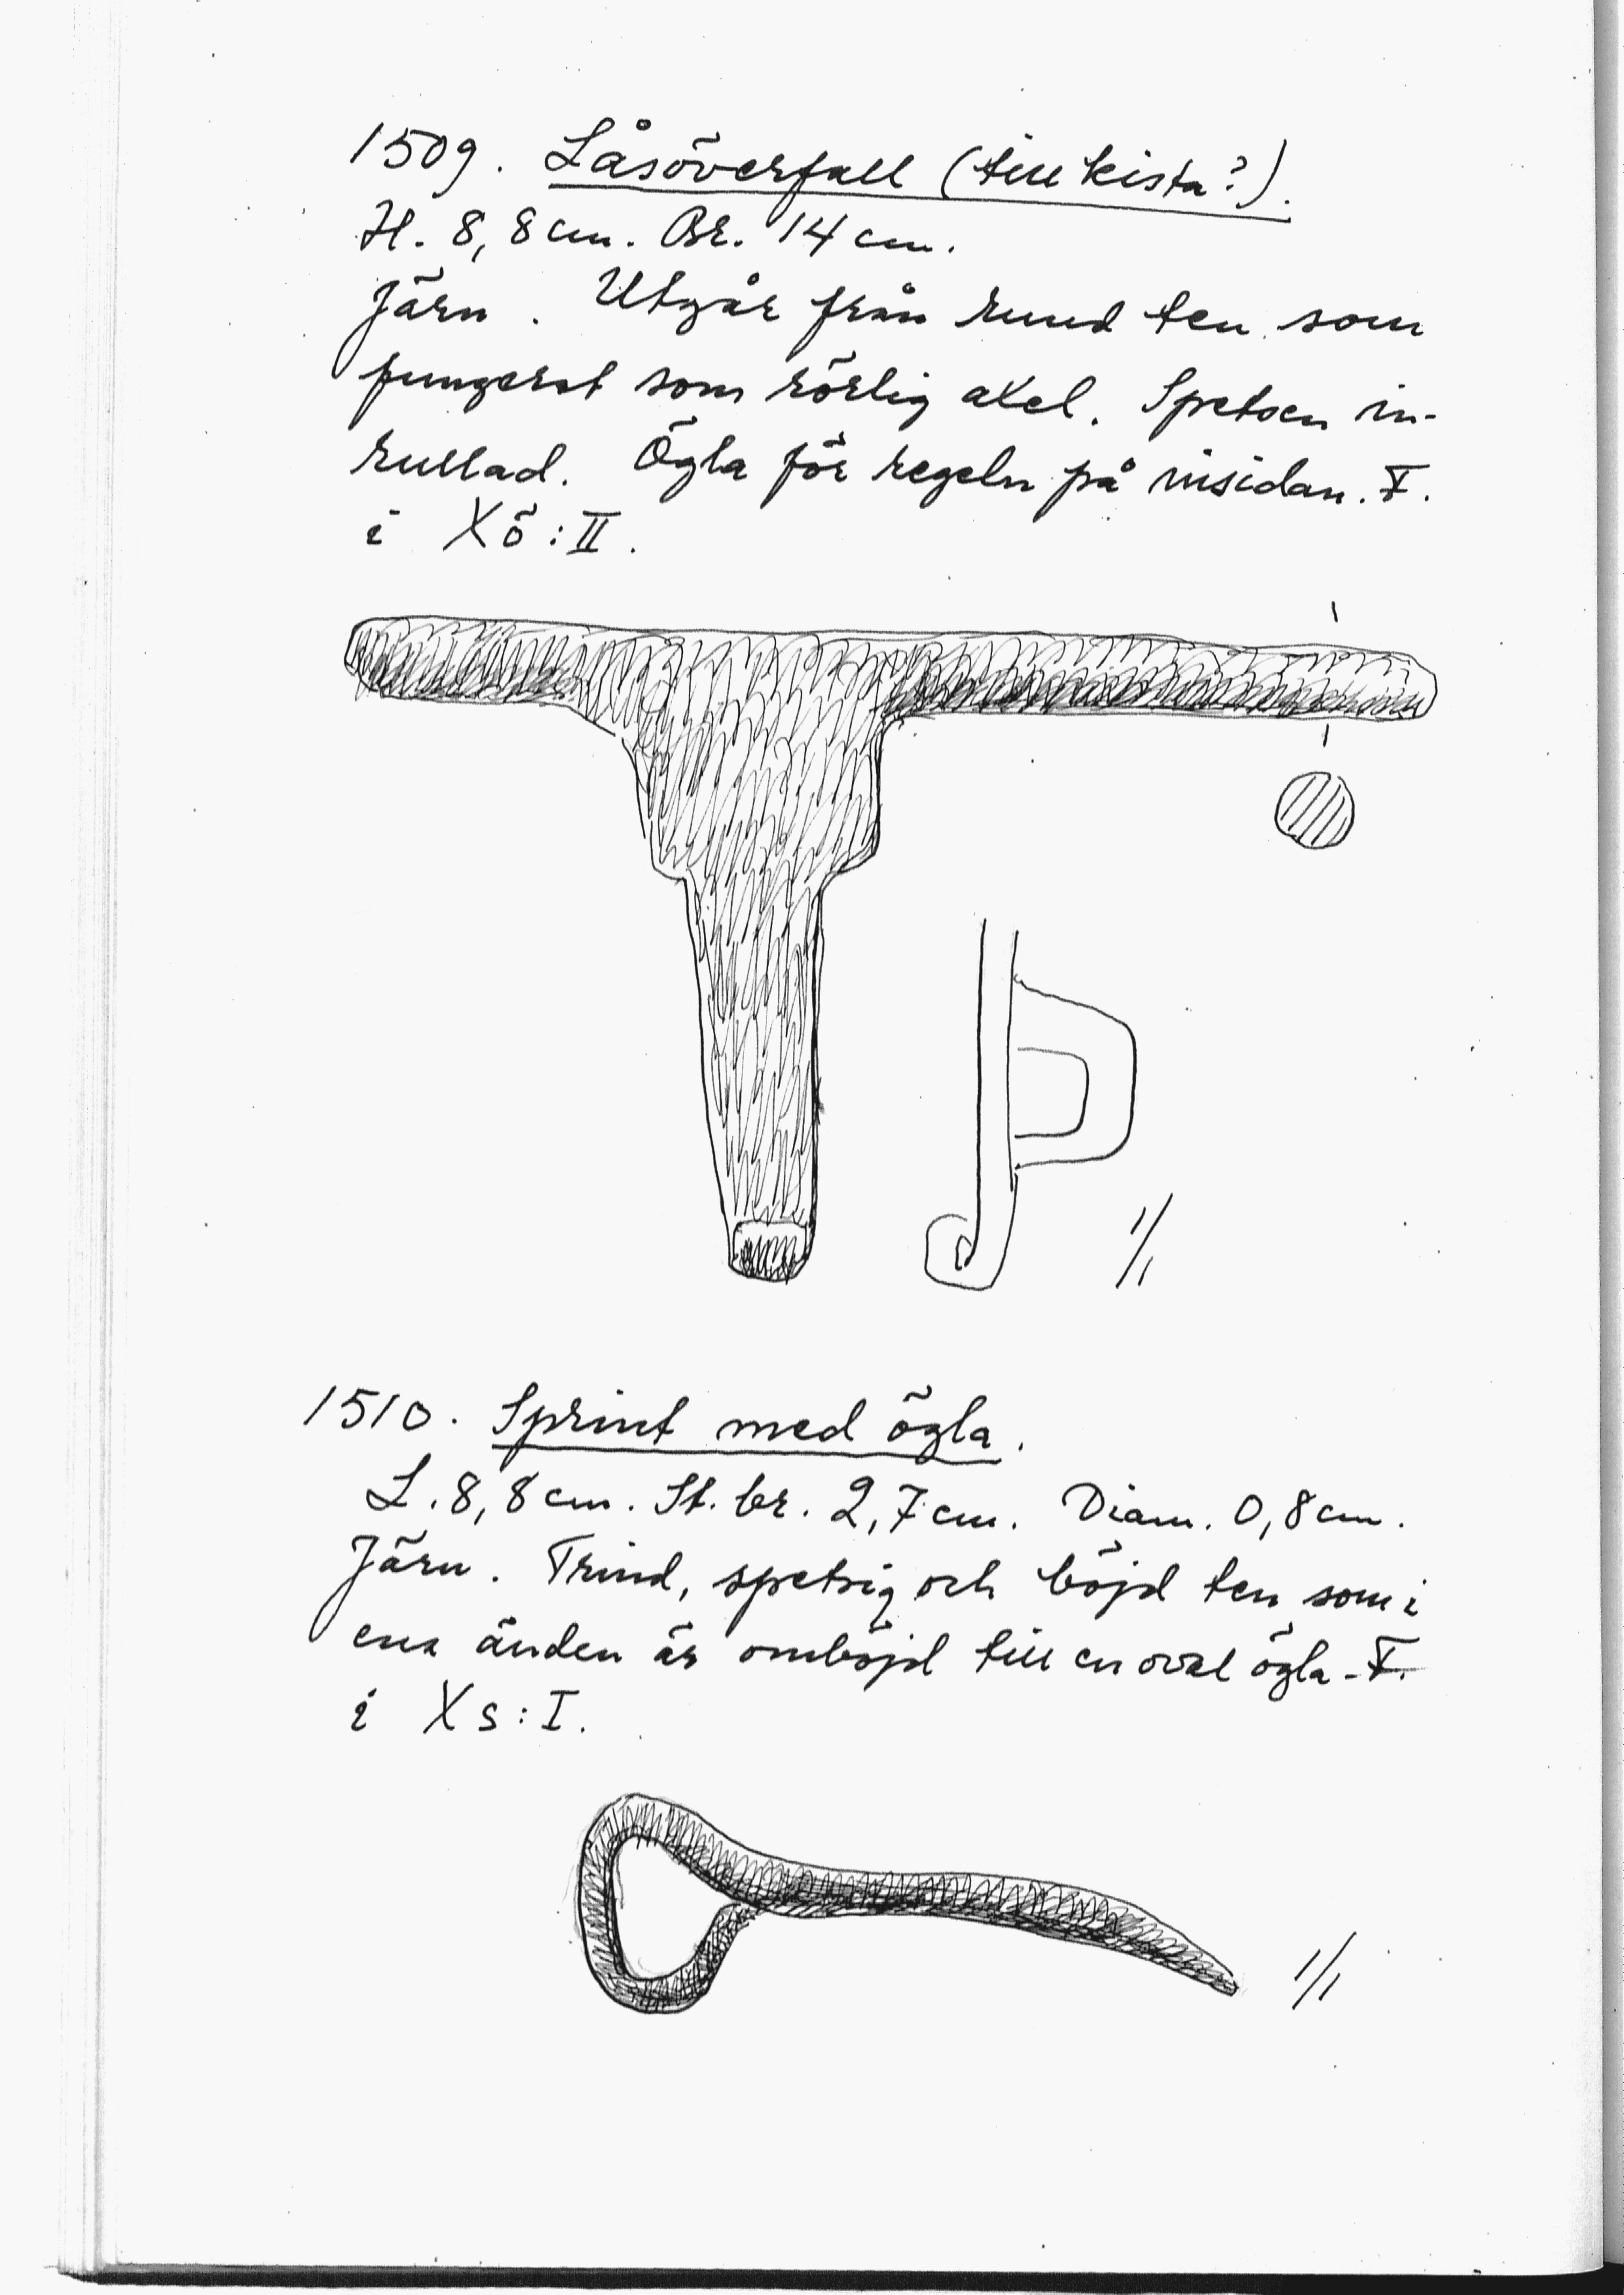 1509. Låsöverfall (till kista?).
H. 8,8 cm. Br. 14 cm.
Järn. Utgår från rund ten som
fungerat som rörlig axel. Spetsen in-
rullad. Ögla för regeln på insidan. F.
i Xö:II.
1/1
1510. Sprint med ögla.
L. 8,8 cm. St. br. 2,7 cm. Diam. 0,8 cm.
Järn. Trind, spetsig och böjd ten som i
ena änden är omböjd till en oval ögla. F.
i Xs:I.
1/1